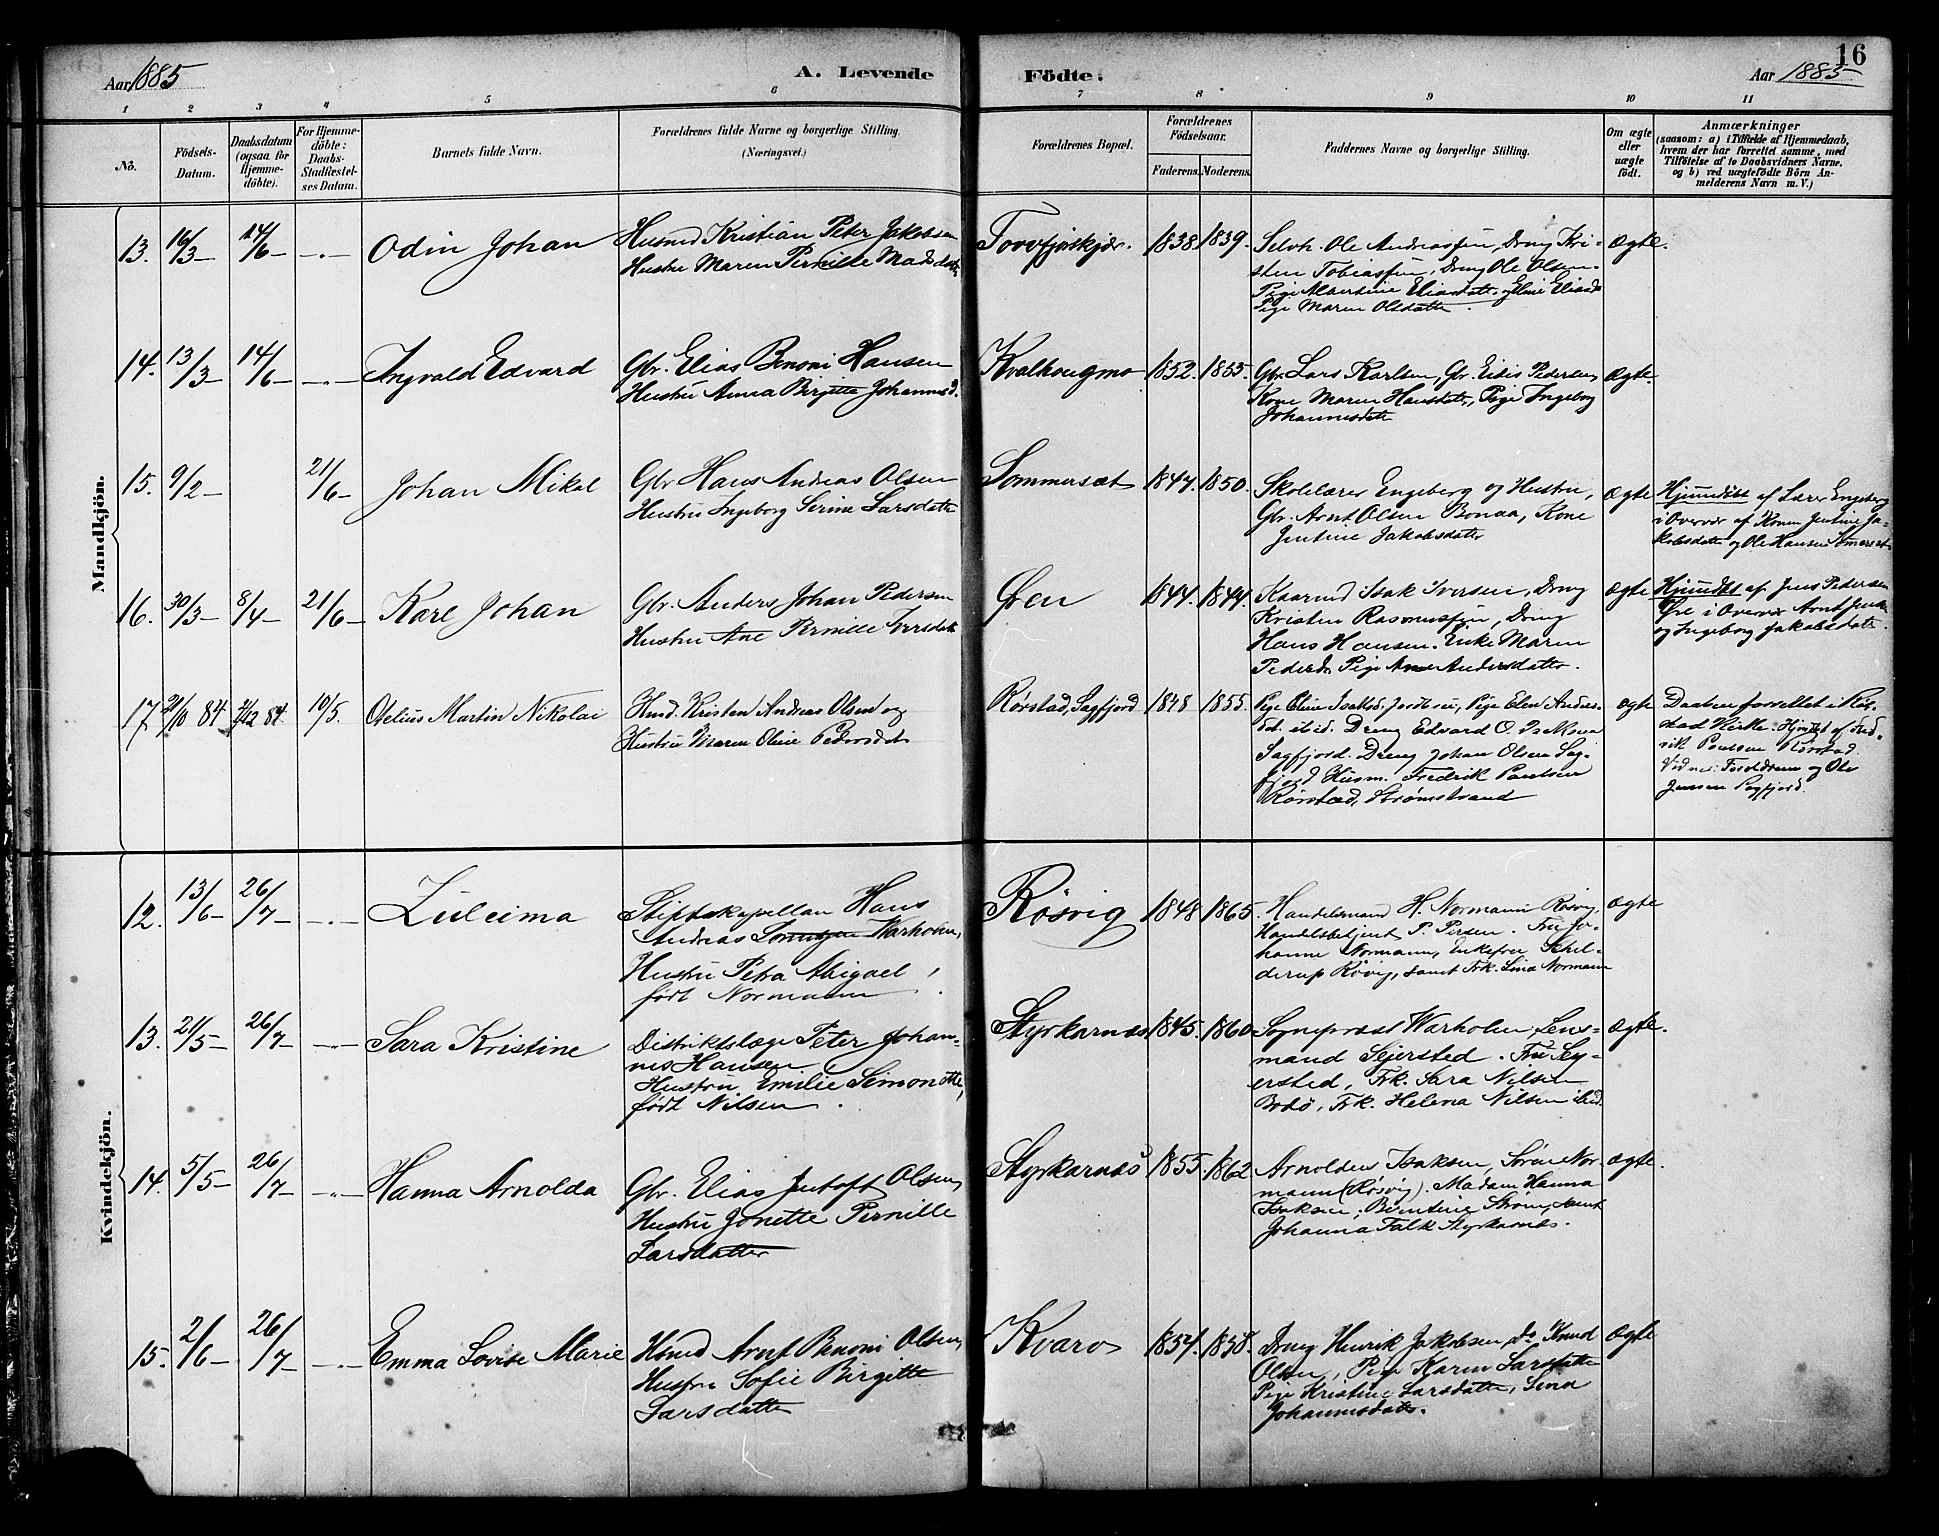 Aar 1885
A. Levende
Födte.
Aar 1885
16
1 2 3 4 5 6 7 8 9 10 11
No.
Födsels-
Datum.
Daabsdatum
(ogsaa for
Hjemme-
döbte).
For Hjemme-
döbte:
Daabs-
Stadfæstel-
ses Datum.
Barnets fulde Navn.
Forældrenes fulde Navne og borgerlige Stilling.
(Næringsvei.)
Forældrenes Bopæl.
Forældrenes
Födselsaar.
Faderens. Moderens.
Faddernes Navne og borgerlige Stilling.
Om ægte
eller
uægte
født.
Anmærkninger
(saasom: a) i Tilfælde af Hjemmedaab,
hvem der har forrettet samme, med
Tilföielse af to Daabsvidners Navne.
og b) ved uægtefödte Börn An-
melderens Navn m. V.)
Mandkjön.
13. 16/3 14/6 Odin Johan
Husmd Kristian Peter Jakobsen
Hustru Maren Pernille Madsdatter
1838. 1839.
Selvh. Ole Andreassen, Dreng Kri-
sten Tobiassen, Dreng Ole Olsen.
Pige Albertine Eliasdatter, Pige Eline Eliasd
Pige Maren Olsdatter.
Ægte.
14. 13/3 14/6 Ingvald Edvard
Gbr. Elias Benoni Hansen
Hustru Anna Birgitte Johannesd.
Kvalhougmo 1852. 1853.
Gbr. Lars Karlsen, Gbr. Edis Pedersen,
Kone Maren Hansdatter, Pige Ingeborg
Johannesdatter
Ægte.
15. 9/2 21/6 Johan Mikal
Gbr Hans Andreas Olsen
Hustru Ingeborg Serine Larsdatter
Sommersæt 1847. 1850.
Skolelærer Engeberg og Hustru,
Gbr. Arnt Olsen Bonaa, Kone
Jentine Jakobsdatter
Ægte
Hjemdöbt af Lærer Engeberg
i Overvær af Konen Jentine Ja-
kobsdatter og Ole Hansen Somerset
16. 30/3 8/4 21/6 Karl Johan
Gbr. Anders Johan Pedersen
Hustru Ane Pernille Iversdatter
Øren 1844. 1844.
Kaarmd Isak Iversen, Dreng
Kristen Rasmussen, Dreng
Hans Hansen. Enke Maren
Pedersd. Pige Ane Andersdatter.
Ægte
Hjemdöbt af Jens Pedersen
Øre i Overvær Arnt Jensen
og Ingeborg Jakobsdatter.
17 84 84 10/5. Otelius Martin Nikolai
Husmd. Kristen Andreas Olsen og
Hustru Maren Oline Pedersdatter
Rørstad, Sagfjord 1848 1855.
Pige Oline Isaksd. Pige Elen Andreas-
dat. ibid. Dreng Edvard O. Isaksen
Sagfjord. Dreng Johan Olsen Sag-
fjord Husm. Fredrik Paulsen
Rørstad, Strømstrand
ægte
Daaben forrettet i Rör-
stad Kirke. Hjdøbt af Fred-
rik Paulsen Rörstad.
Vidner: Forældrene og Ole
Jensen Sagfjord.
Kvindekjön.
12. 13/6 26/7 Zuleima
Stiftskapellan Hans
Andreas Warholm,
Hustru Petra Abigael,
født Normann
Røsvig 1848 1865.
Handelsmand H. Normann Røsvig,
Handelsbetjent P. Persen. Fru Jo-
hanne Normann, Enkefru Schil-
derup Røvig, samt Frk. Lina Normann
Ægte
13. 21/5 26/7 Sara Kristine
Distriktslæge Peter Johan-
nes Hansen
Hustru Emilie Simonette,
født Nilsen.
Styrkarnæs 1845. 1860.
Sognepræst Warholm, Lens-
mand Sejersted. Fru Sey-
ersted, Frk. Sara Nilsen
Bodö, Frk. Helena Nilsen ibid.
Ægte.
14. 5/5 26/7 Hanna Arnolda
Gbr. Elias Jentoft Olsen,
Hustru Jonette Pernille
Larsdatter
Styrkarnæs 1855. 1862.
Arnoldus Isaksen, Sören Nor-
mann (Røsvig). Madam Hanna
Isaksen, Berntine Ström, samt
Johanna Falk Styrkarnæs.
Ægte.
15. 2/6 26/7 Emma Lovise Marie
Hsmd Arnt Benoni Olsen,
Hustru Sofie Birgitte
Larsdatter
Kvarv 1854. 1858.
Dreng Henrik Jakobsen, Do Knud
Olsen, Pige Karen Larsdatter
Pige Kristine Larsdatter, Lina
Johannesdatter.
Ægte